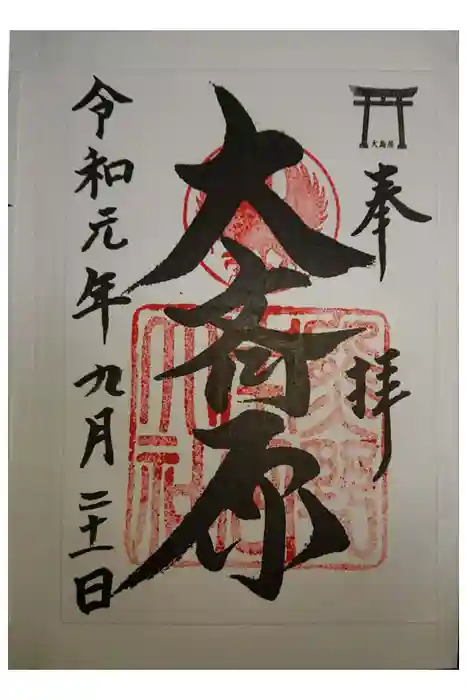 奉拝
大斎原
令和元年九月二十一日